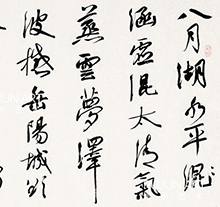 八月湖水平涵
涵虚混太清氣
蒸雲夢澤
波撼岳陽城欲